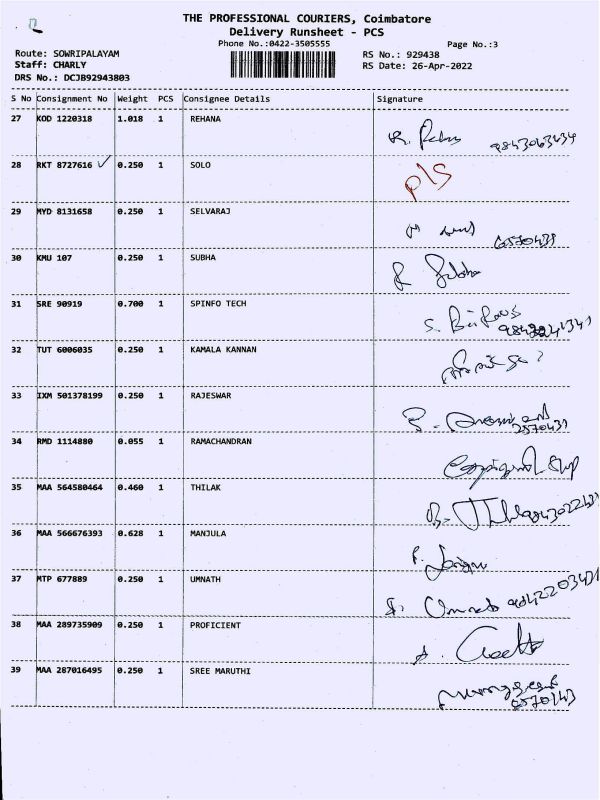 THE PROFESSIONAL COURIERS, Coimbatore
Delivery Runsheet - PCS
Phone No.:0422-3505555
Page No.:3
Route: SOWRIPALAYAM
RS No.: 929438
Staff: CHARLY
RS Date: 26-Apr-2022
DRS No.: DCJB92943803
S No Consignment No Weight PCS Consignee Details Signature
27 KOD 1220318 1.018 1 REHANA
28 RKT 8727616 0.250 1 SOLO
P/S
29 MYD 8131658 0.250 1 SELVARAJ
30 KMU 107 0.250 1 SUBHA
31 SRE 90919 0.700 1 SPINFO TECH
32 TUT 6006035 0.250 1 KAMALA KANNAN
33 IXM 501378199 0.250 1 RAJESWAR
34 RMD 1114880 0.055 1 RAMACHANDRAN
35 MAA 564580464 0.460 1 THILAK
36 MAA 566676393 0.628 1 MANJULA
37 MTP 677889 0.250 1 UMNATH
38 MAA 289735909 0.250 1 PROFICIENT
39 MAA 287016495 0.250 1 SREE MARUTHI